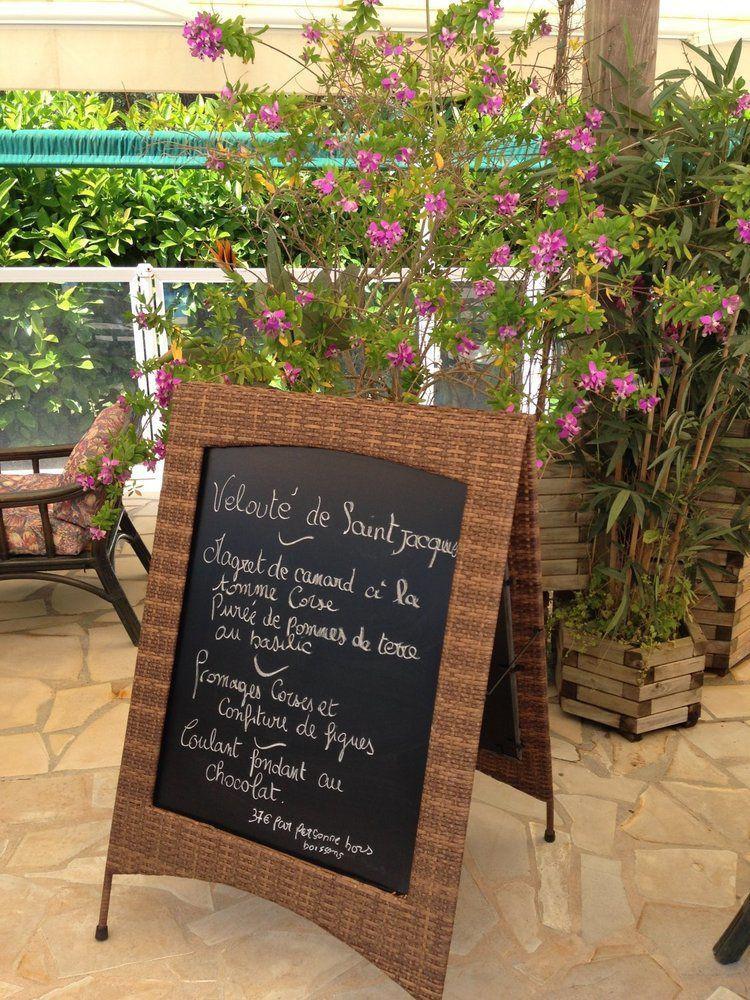 Velouté de Saint Jacques
Magret de canard à la
tomme Corse
Purée de pommes de terre
au basilic
fromages Corses et
Confiture de figues
Coulant fondant au
chocolat.
37€ par personne hors
boissons